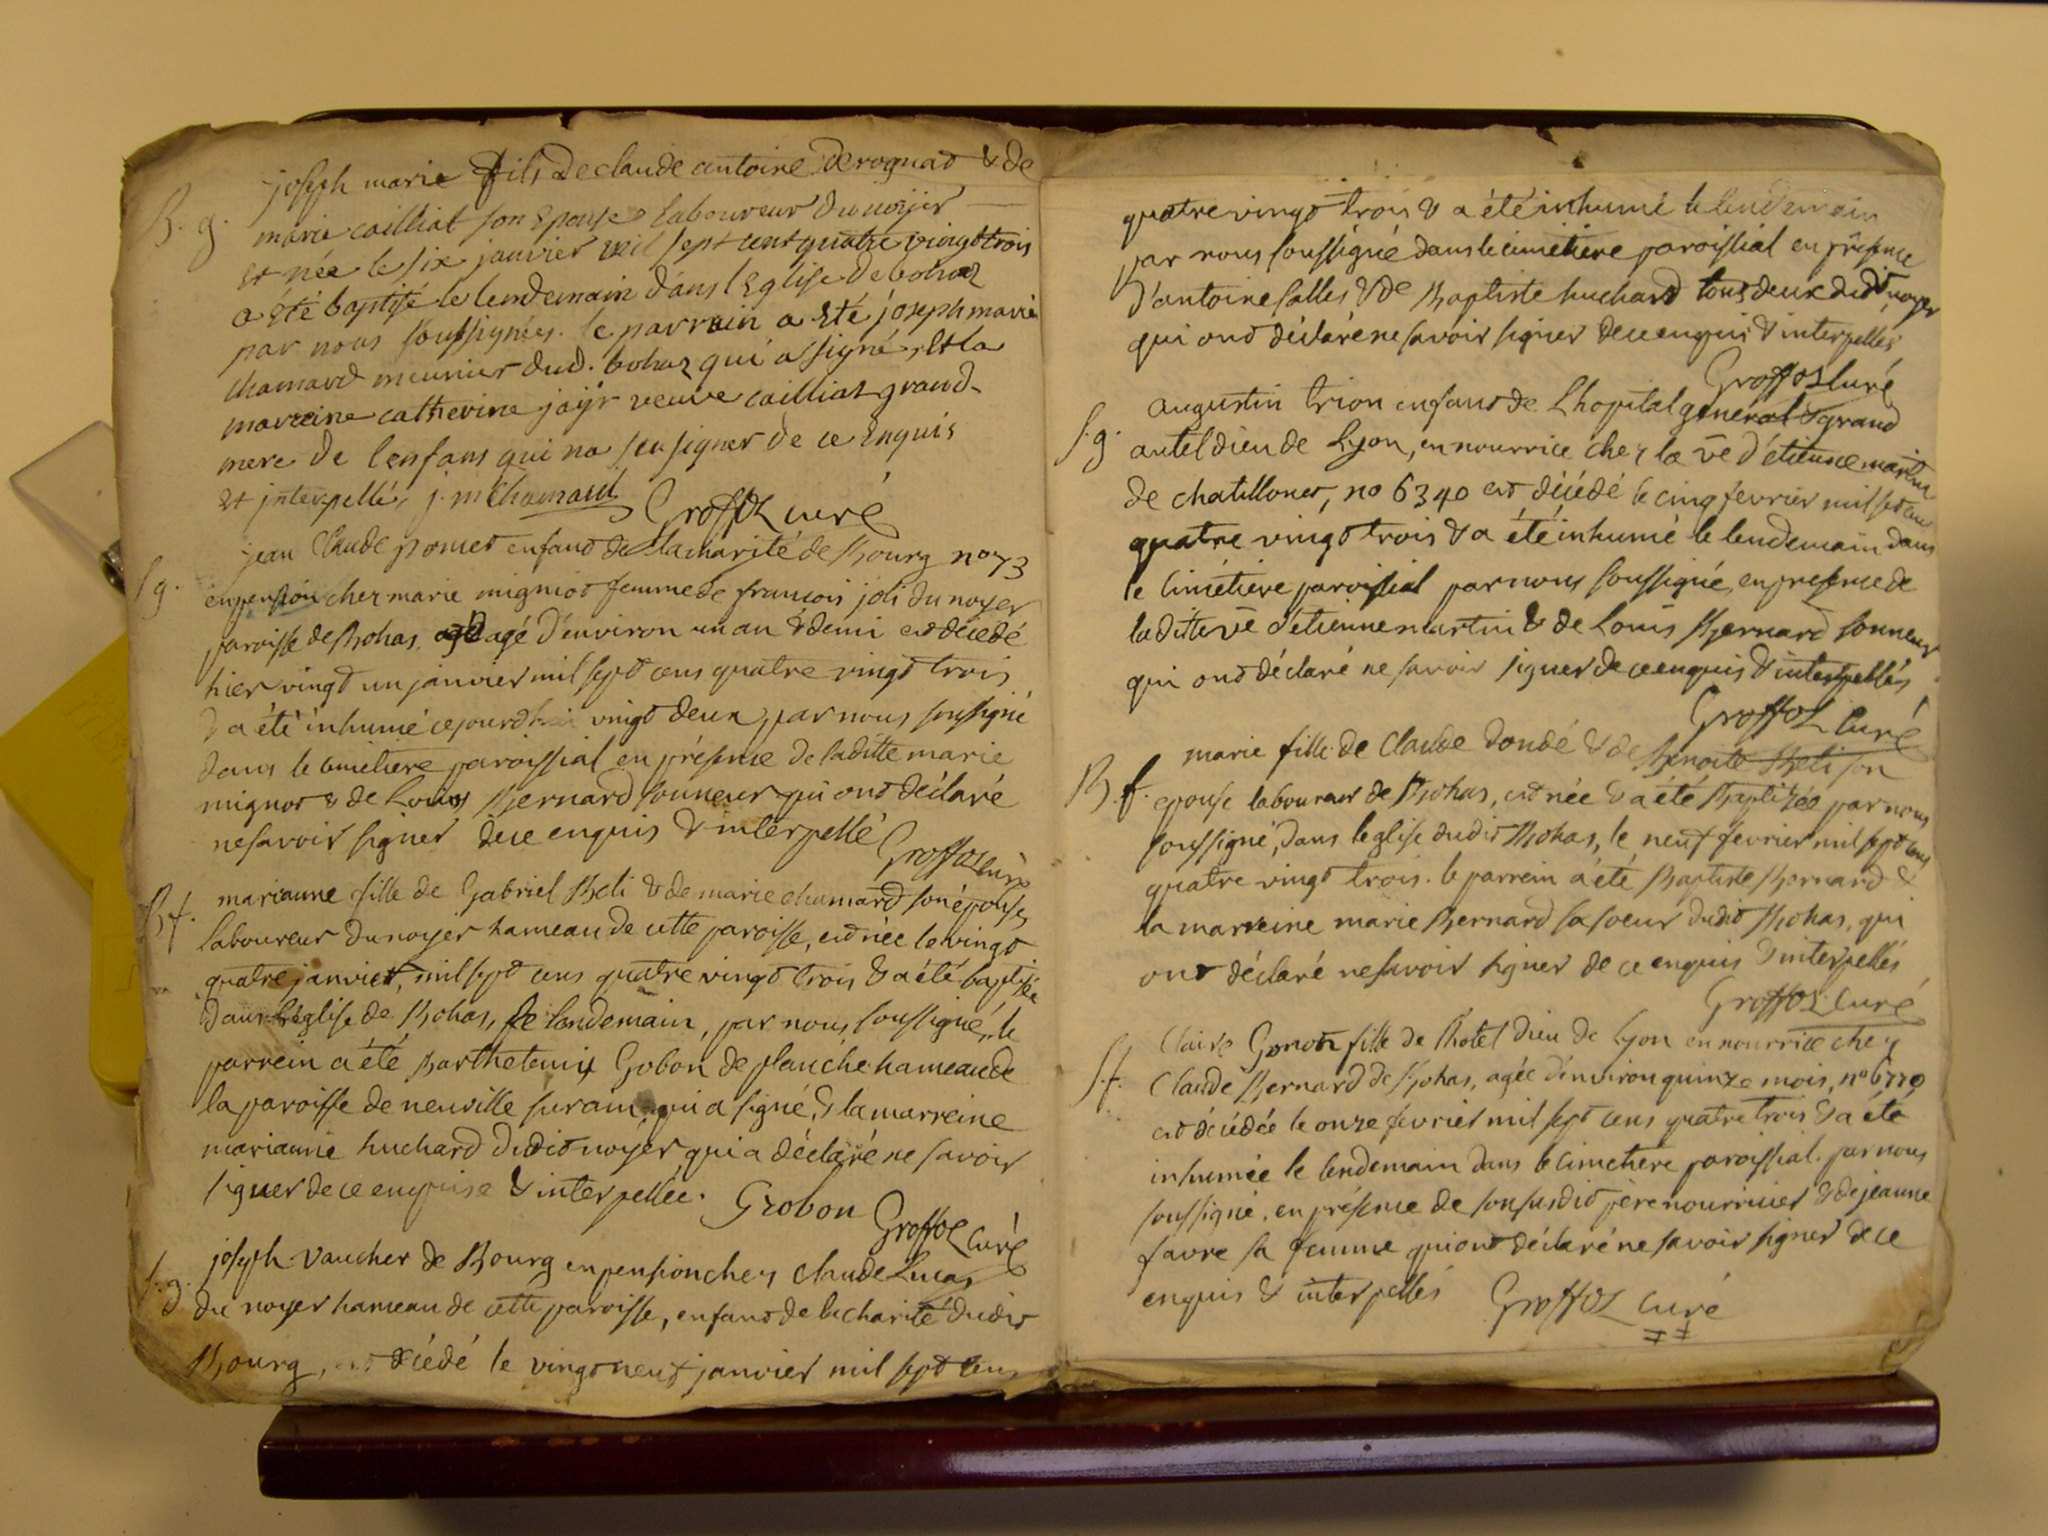 joseph marie fils de claude antoine derognat & de
B. g. marie cailliat son Epouse laboureur du noÿer
et née le six janvier mil sept cent quatre vingt trois
a Eté baptisé le lendemain dans l'Eglise de bohaz
par nous soussignés. le parrain a Eté joseph marie
chamard meunier dud. bohaz qui a signé, et la
marreine catherine jaÿr veuve cailliat grand-
mere de l'enfans qui na seu signer de ce Enquis
et interpellé, j. m Chamard Groffoz curé
jean Claude pomet enfant de la charité de Bourg no 73
S g. en pension chez marie migniot femme de francois joli du noyer
paroisse de Bohas, agé d'environ un an & demi est décedé
hier vingt un janvier mil sept cens quatre vingt trois
& a été inhumé cejourdhui vingt deux, par nous soussigné
dans le cimetiere paroissial en présence de laditte marie
mignot & de Louis Bernard sonneur qui ont déclaré
ne savoir signer de ce enquis & interpellé Groffoz curé
marianne fille de Gabriel Beli & de marie chamard son épouse,
B f. laboureur du noyer hameau de cette paroisse, est née le vingt
quatre janvier, mil sept cens quatre vingt trois & a été baptisée
dans l'église de Bohas, le landemain, par nous soussigné, le
parrein a été Barthelemix Gobon de planche hameau de
la paroisse de neuville sur ain qui a signé, & la marreine
marianne huchard dudit noyer qui a déclaré ne savoir
signer de ce enquise & interpellée. Grobon Groffoz Curé
joseph Vaucher de Bourg en pension chez claude Lucas
S. g. du noyer hameau de cette paroisse, enfant de la charité dudit
Bourg, est décédé le vingt neuf janvier mil sept cens
quatre vingt trois & a été inhumé le lendemain
par nous soussigné dans le cimetiere paroissial en présence
d'antoine salles & de Baptiste huchard tous deux dudt noyer
qui ont déclaré ne savoir signer de ce enquis & interpellés
Groffoz Curé
augustin trion enfant de Lhopital general & grand
S. g. autel dieu de Lyon, en nourrice chez la ve d'étienne martin
de chatillonet, no 6340 est décédé le cinq fevrier mil sept cens
quatre vingt trois & a été inhumé le lendemain dans
le Cimetiere paroissial par nous soussigné, en presence de
laditte ve d'étienne martin & de Louis Bernard sonneur
qui ont déclaré ne savoir signer de ce enquis & interpellés
Groffoz Curé
marie fille de Claude Dondé & de Benoite Beli son
B. f. epouse laboureur de Bohas, est née & a été Baptisée par nous
soussigné, dans l'eglise dudit Bohas, le neuf fevrier mil sept cens
quatre vingt trois. le parrein a été Baptiste Bernard &
la marreine marie Bernard sa soeur dudit Bohas, qui
ont déclaré ne savoir signer de ce enquis & interpellés
Groffoz Curé
Claire Gonon fille de l'hotel dieu de Lyon en nourrice chez
S. f. Claude Bernard de Bohas, agée d'environ quinze mois, no 6770
est décédée le onze fevrier mil sept cens quatre trois & a été
inhumée le lendemain dans le cimetiere paroissial, par nous
soussigné, en présence de son susdit père nourricier & de jeanne
favre sa femme qui ont déclaré ne savoir signer de ce
enquis & interpellés Groffoz Curé